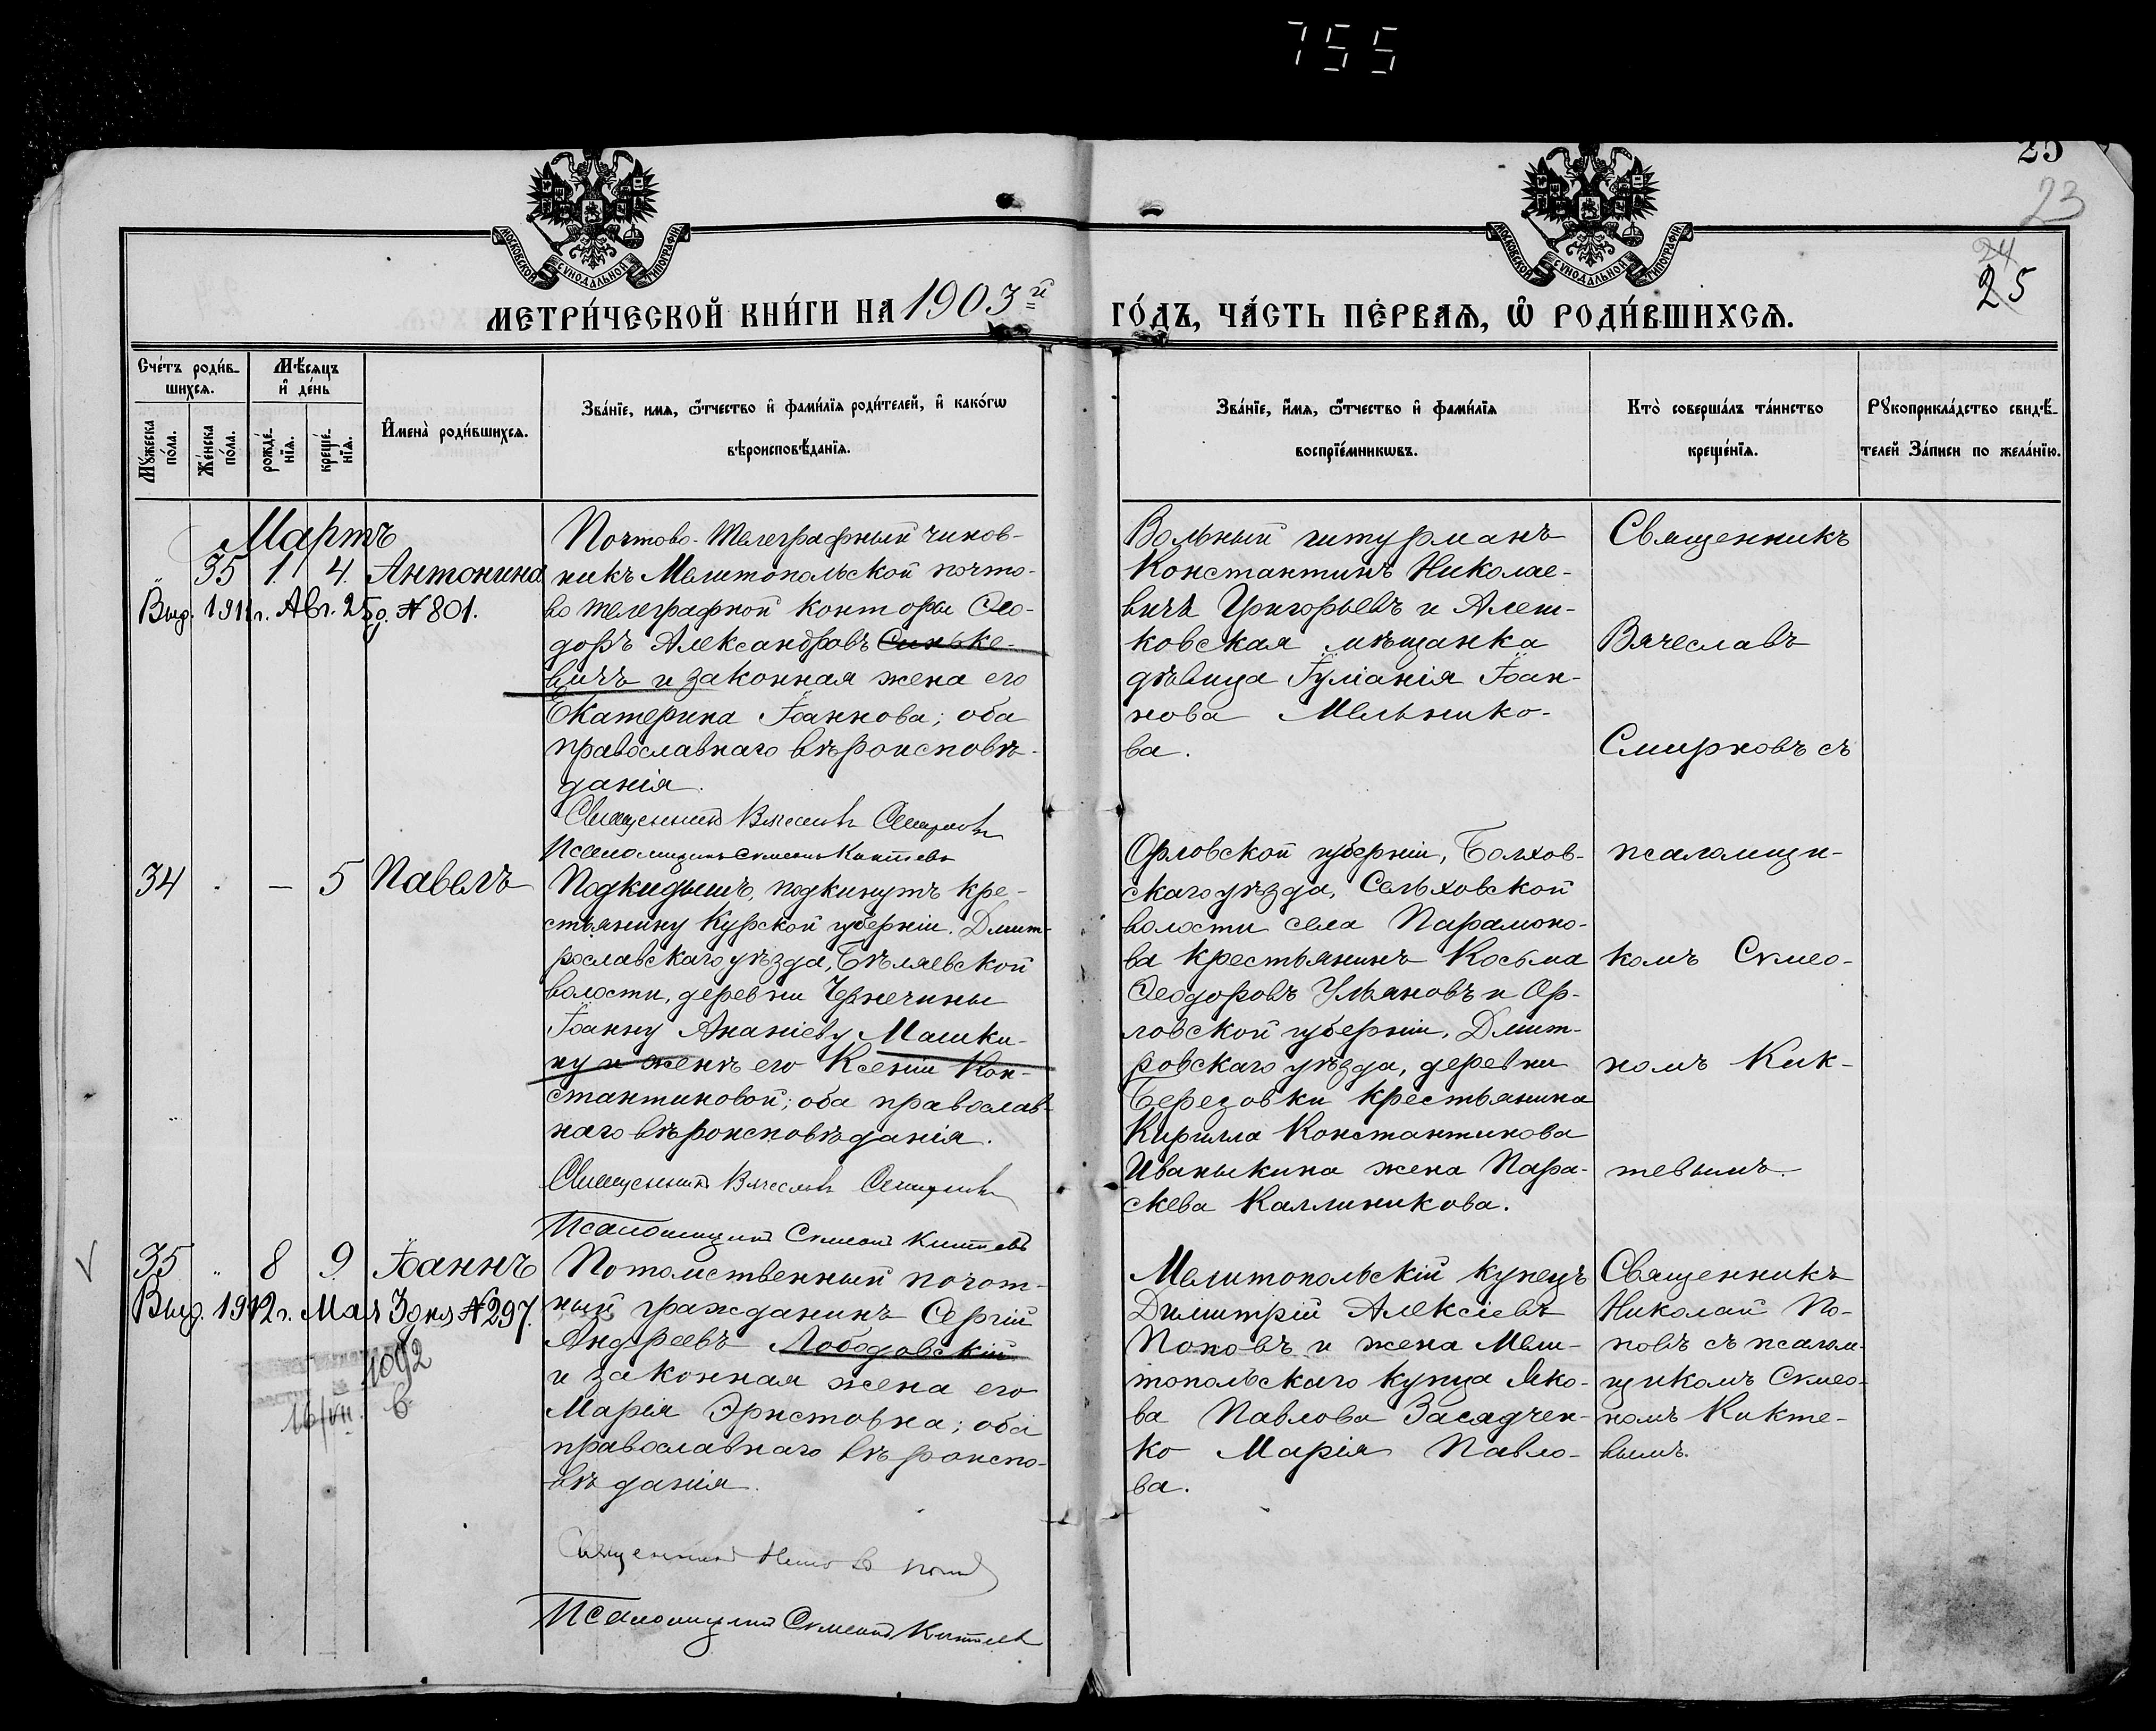 755
25
23
24
25
МОСКОВСКОЙ СѴНОДАЛЬНОЙ ТИПОГРАФІИ
МОСКОВСКОЙ СѴНОДАЛЬНОЙ ТИПОГРАФІИ
МЕТРИ́ЧЕСКОЙ КНИ́ГИ НА 1903й
ГО́ДЪ, ЧА́СТЬ ПЕ́РВАѦ, Ѡ҆ РОДИ́ВШИХСѦ.
Сче́тъ роди́в-
шихсѧ.
Мѣ́сѧцъ
и҆ де́нь
Мꙋ́жеска
по́ла.
Же́нска
по́ла.
рожде́-
нїѧ.
креще́-
нїѧ.
И҆мена̀ роди́вшихсѧ.
Зва́нїе, имѧ, ѻ҆́тчество и҆ фами́лїѧ роди́телей, и҆ како́гѡ
вѣроисповѣ́данїѧ.
Зва́нїе, и҆́мѧ, ѻ҆́тчество и҆ фами́лїѧ
воспрїе́мникѡвъ.
Кто̀ соверша́лъ та́инство
креще́нїѧ.
Рꙋкоприкла́дство свидѣ́-
телей За́писи по жела́нїю.
Мартъ
35 1. 4. Антонина
Выд. 1911 г. Авг. 25 д. № 801.
Почтово-Телеграфный чинов-
никъ Мелитопольской почто-
во телеграфной конторы Ѳео-
доръ Александровъ Синьке-
вичъ и законная жена его
Екатерина Іоаннова; оба
православнаго вѣроисповѣ-
данія.
Священникъ Вячеславъ Смирновъ
Псаломщикъ Сѵмеонъ Киктевъ
Вольный штурманъ
Константинъ Николае-
вичъ Григорьевъ и Алеш-
ковская мѣщанка
дѣвица Іуліанія Іоан-
нова Мельнико-
ва.
Священникъ
Вячеславъ
Смирновъ съ
псаломщи-
комъ Сѵмео-
номъ Кик-
тевымъ.
34 — 5 Павелъ
Подкидышъ, подкинутъ кре-
стьянину Курской губерніи, Дмит-
рославскаго уѣзда, Бѣляевской
волости, деревни Чернечины
Іоанну Ананіеву Машки-
ну и женѣ его Ксеніи Кон-
стантиновой; оба православ-
наго вѣроисповѣданія.
Священникъ Вячеславъ Смирновъ
Псаломщикъ Сѵмеонъ Киктевъ
Орловской губерніи, Болхов-
скаго уѣзда, Сельховской
волости села Парамоно-
ва крестьянинъ Косьма
Ѳеодоровъ Ульяновъ и Ор-
ловской губерніи, Дмит-
ровскаго уѣзда, деревни
Березовки крестьянина
Кирилла Константинова
Иванькина жена Пара-
скева Каллиникова.
35 8 9 Іоаннъ
Выд. 1912 г. Мая 3 дня № 297.
1092
16/VII
в
Потомственный почот-
ный гражданинъ Сергій
Андреевъ Лободовскій
и законная жена его
Марія Эристовна; оба
православнаго вѣроиспо-
вѣданія.
Псаломщикъ Сѵмеонъ Киктевъ
Мелитопольскій купецъ
Димитрій Алексіевъ
Поповъ и жена Мели-
топольскаго купца Яко-
ва Павлова Засядчен-
ко Марія Павло-
ва.
Священникъ
Николай По-
повъ съ псалом-
щикомъ Сѵмео-
номъ Кикте-
вымъ.